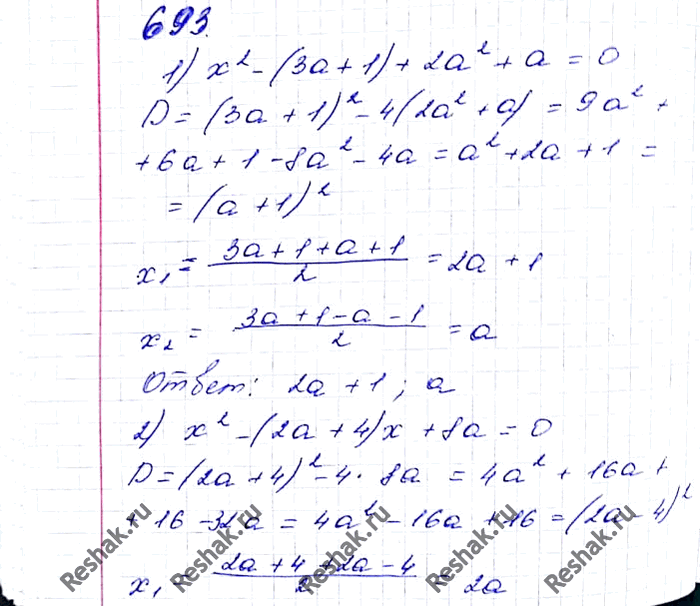 693.
1) x² - (3a + 1) + 2a² + a = 0
D = (3a + 1)² - 4(2a² + a) = 9a² +
+ 6a + 1 - 8a² - 4a = a² + 2a + 1 =
= (a + 1)²
x₁ = (3a + 1 + a + 1)/2 = 2a + 1
x₂ = (3a + 1 - a - 1)/2 = a
Ответ: 2a + 1; a
2) x² - (2a + 4)x + 8a = 0
D = (2a + 4)² - 4 · 8a = 4a² + 16a +
+ 16 - 32a = 4a² - 16a + 16 = (2a - 4)²
x₁ = (2a + 4 + 2a - 4)/2 = 2a
Reshak.ru
Reshak.ru
Reshak.ru
Reshak.ru
Reshak.ru